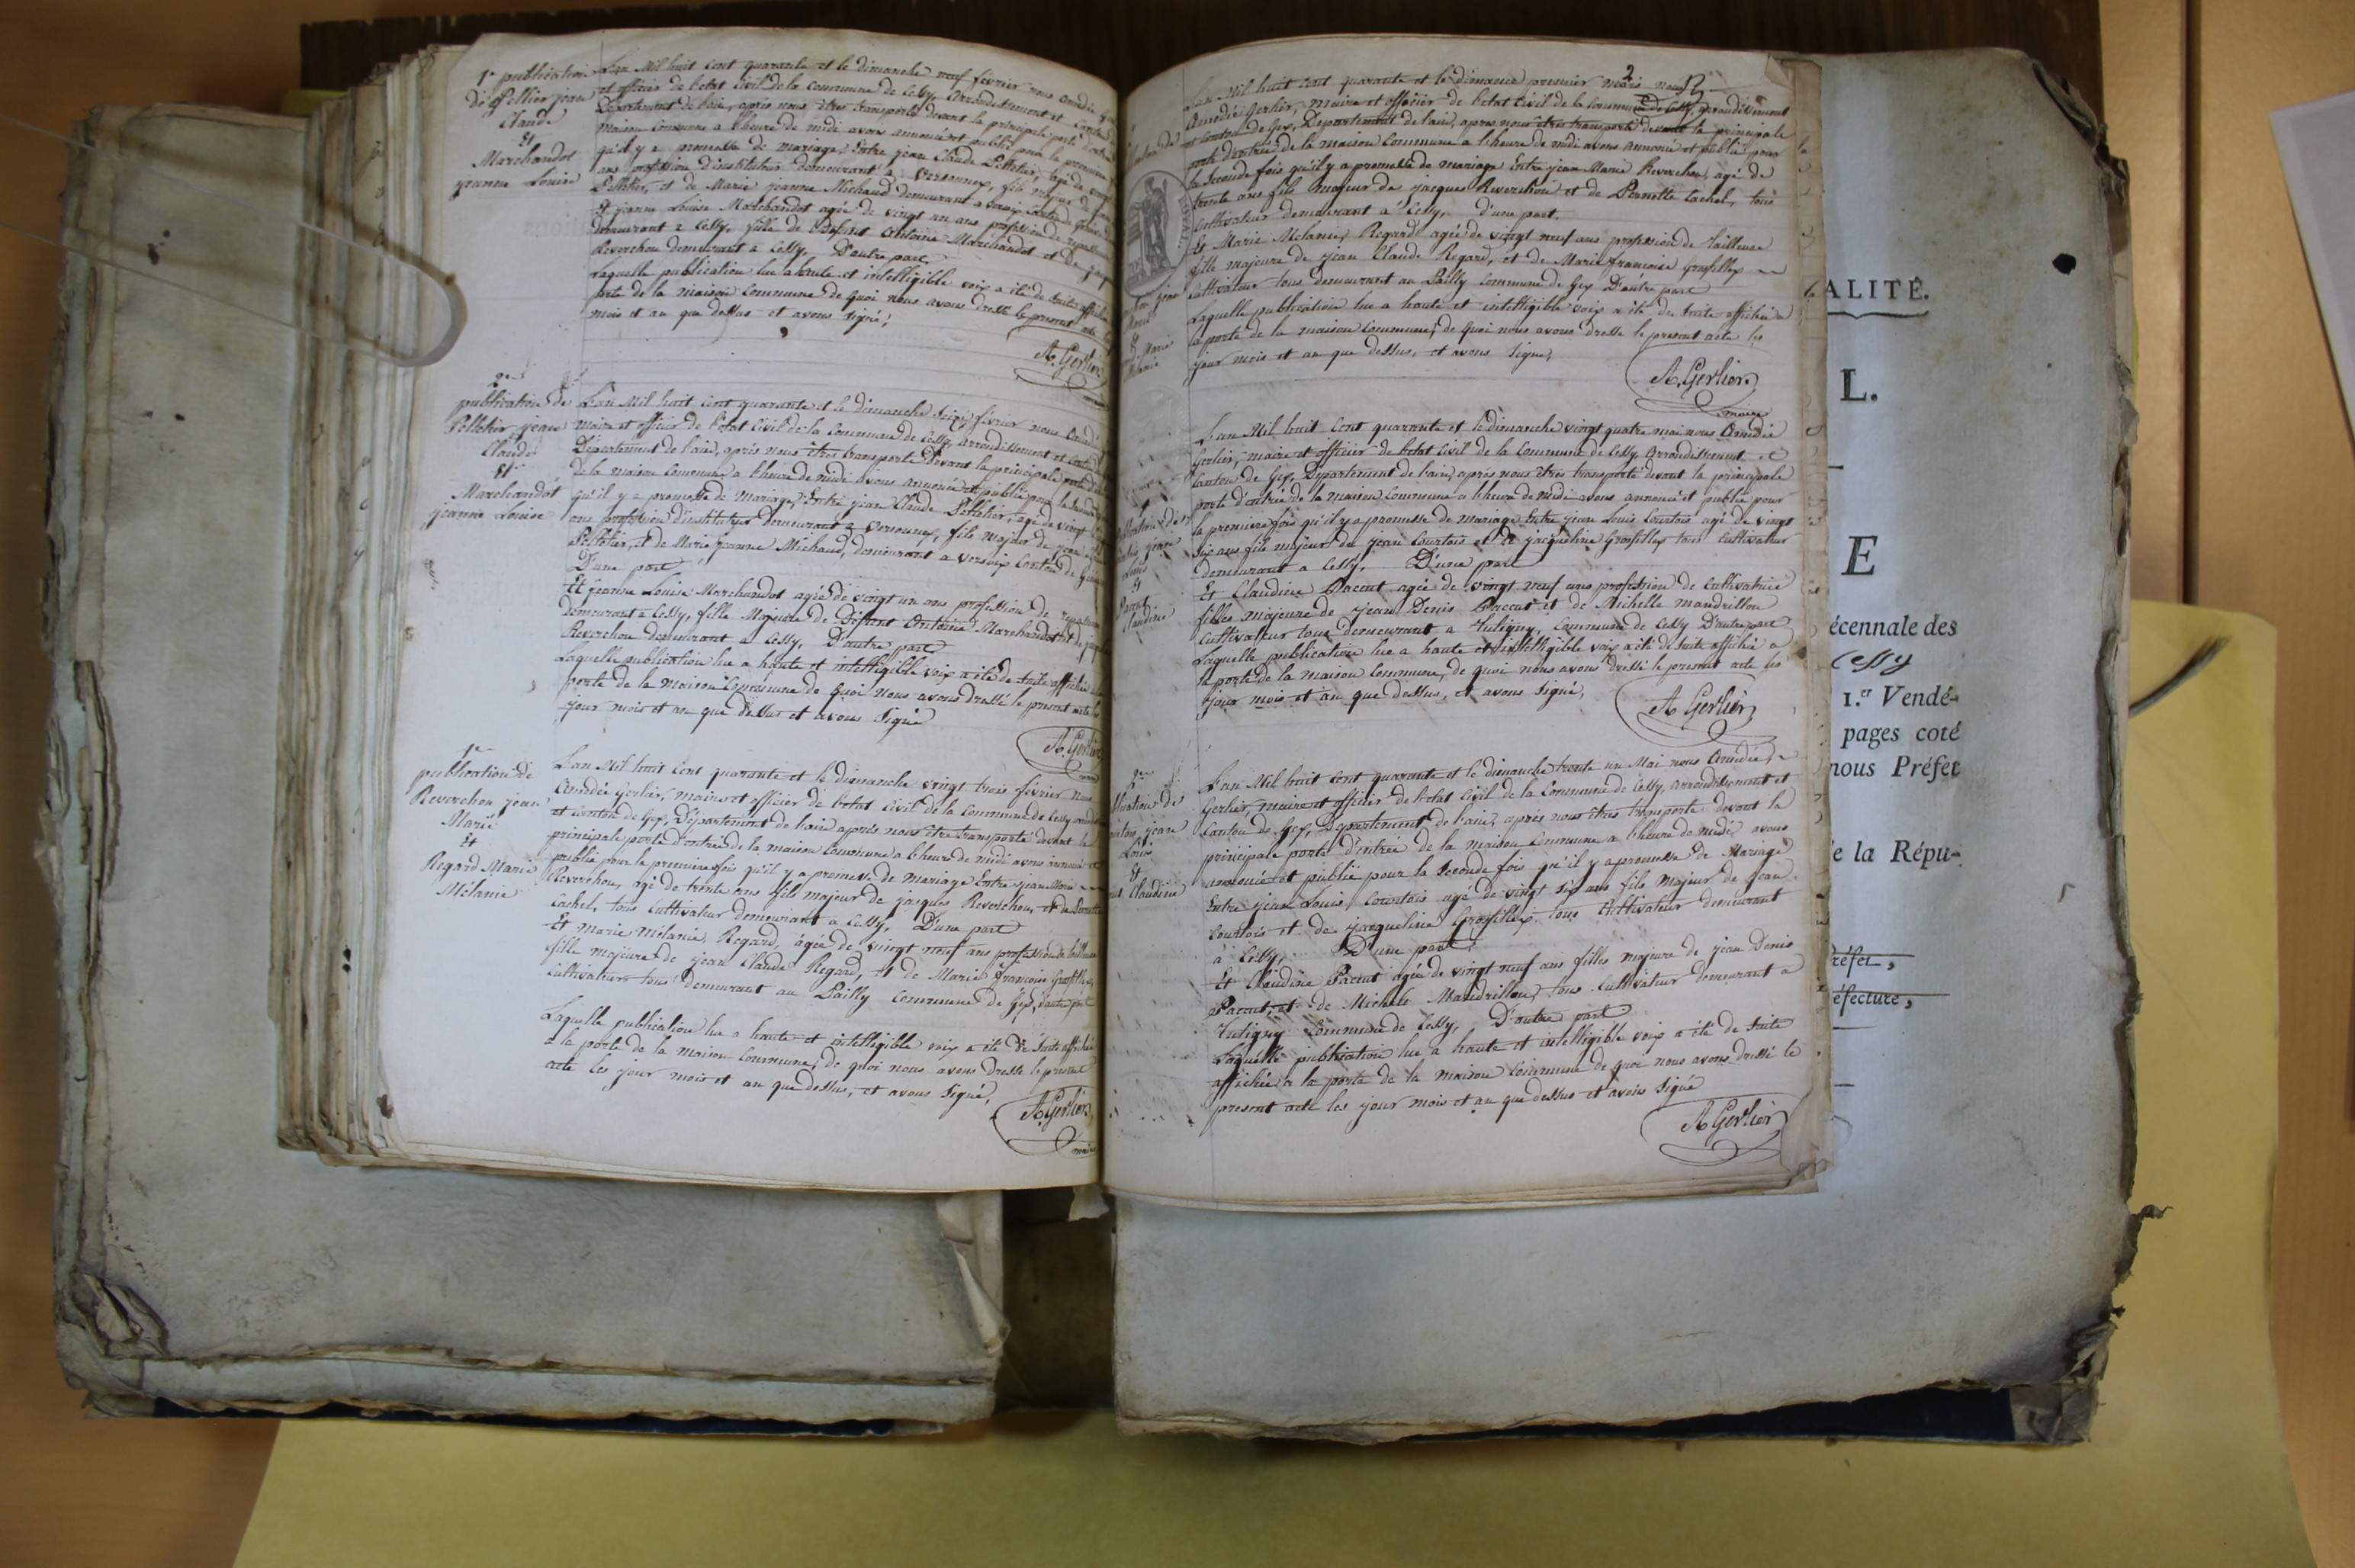 1re publication
de Pelletier jean
Claude
Et
Marchandot
jeanne Louise
L'an Mil huit cent quarante et le dimanche neuf février nous Amédée
et officier de l'etat Civil de la commune de Cessy, arrondissement et Canton
Département de l'ain, après nous être transporté devant la principale porte d'entrée
maison Commune a l'heure de midi avons annoncé et publié pour la première
qu'il y a promesse de mariage, Entre jean Claude Pelletier, agé de vingt
ans profession d'instituteur demeurant a Versonnex, fils majeur de jean
Pelletier, et de Marie jeanne Michaud demeurant a Versoix Canton
Et jeanne Louise Marchandot agée de vingt un ans profession de repasseuse
demeurant a Cessy, fille de Défunt Antoine Marchandot et de
Reverchon demeurant a Cessy, D'autre part
Laquelle publication lue a haute et intelligible voix a été de suite affichée
porte de la maison Commune de quoi nous avons dressé le present acte
mois et an que dessus et avons signé,
A. Gerlier
2me
publication de
Pelletier jean
Claude
Et
Marchandot
jeanne Louise
L'an Mil huit cent quarante et le dimanche seize février nous Amédée
maire et officier de l'etat Civil de la Commune de Cessy, arrondissement et Canton
Département de l'ain, après nous être transporté Devant la principale porte
de la maison Commune a l'heure de midi avons annoncé et publié pour la seconde
qu'il y a promesse de mariage, Entre jean Claude Pelletier, agé de vingt
ans profession d'instituteur demeurant a Versonnex, fils majeur de jean
Pelletier, et de Marie jeanne Michaud, demeurant a Versoix Canton de
D'une part
Et jeanne Louise Marchandot agée de vingt un ans profession de repasseuse
demeurant a Cessy, fille Majeure de Défunt Antoine Marchandot et de
Reverchon demeurant a Cessy, D'autre part
Laquelle publication lue a haute et intelligible voix a été de suite affichée
porte de la maison Commune de quoi nous avons dressé le present acte
jour mois et an que dessus et avons signé
A. Gerlier
1re
publication de
Reverchon jean
Marie
Et
Regard Marie
Mélanie
L'an Mil huit cent quarante et le dimanche vingt trois février nous
Amédée Gerlier, maire et officier de l'etat Civil de la Commune de Cessy
et Canton de Gex, Département de l'ain après nous être transporté devant la
principale porte d'entrée de la maison Commune a l'heure de midi avons annoncé et
publié pour la première fois qu'il y a promesse de mariage Entre jean Marie
Reverchon, agé de trente ans fils majeur de jacques Reverchon, et de Pernette
Cachet, tous Cultivateur demeurant a Cessy, D'une part
Et marie Mélanie Regard, agée de vingt neuf ans profession de tailleuse
fille majeure de jean Claude Regard, et de Marie françoise Grosfillex
Cultivateur tous demeurant au Pailly Commune de Gex, D'autre part
Laquelle publication lue a haute et intelligible voix a été de suite affichée
a la porte de la maison Commune, de quoi nous avons dressé le present
acte les jour mois et an que dessus, et avons signé,
A. Gerlier
maire
2
L'an Mil huit cent quarante et le dimanche premier mars nous
Amédée Gerlier, maire et officier de l'etat Civil de la Commune de Cessy, arrondissement
et Canton de Gex, Département de l'ain, apres nous être transporté devant la principale
porte d'entrée de la maison Commune a l'heure de midi avons annoncé et publié pour
la seconde fois qu'il y a promesse de mariage Entre jean Marie Reverchon, agé de
trente ans fils majeur de jacques Reverchon et de Pernette Cachet, tous
Cultivateur demeurant a Cessy, d'une part.
Et Marie Melanie, Regard agée de vingt neuf ans profession de tailleuse
fille majeure de jean Claude Regard, et de Marie françoise Grosfillex
Cultivateur tous demeurant au Pailly Commune de Gex D'autre part
Laquelle publication lue a haute et intelligible voix a été de suite affichée a
la porte de la maison Commune, de quoi nous avons dressé le present acte les
jour mois et an que dessus, et avons signé,
A. Gerlier
maire
jean
Louis
Et
Paccut
Claudine
L'an Mil huit cent quarante et le dimanche vingt quatre mai nous Amédée
Gerlier, maire et officier de l'etat Civil de la Commune de Cessy, arrondissement et
Canton de Gex, Département de l'ain, après nous être transporté devant la principale
porte d'entrée de la maison Commune a l'heure de midi avons annoncé et publié pour
la première fois qu'il y a promesse de mariage Entre jean Louis Courtois agé de vingt
six ans fils majeur de jean Courtois et de jacqueline Grosfillex tous Cultivateur
demeurant a Cessy, D'une part
Et Claudine Paccut agée de vingt neuf ans profession de Cultivatrice
filles majeure de jean Denis Paccut et de Michelle mandrillon
Cultivateur tous demeurant a Tutigny, Commune de Cessy D'autre part
Laquelle publication lue a haute et intelligible voix a été de suite affichée a
la porte de la maison Commune, de quoi nous avons dressé le present acte les
jour mois et an que dessus, et avons signé,
A Gerlier
2me
publication de
Courtois jean
Louis
Et
Claudine
L'an Mil huit cent quarante et le dimanche trente un Mai nous Amédée,
Gerlier, maire et officier de l'etat Civil de la Commune de Cessy, arrondissement et
Canton de Gex, Département de l'ain, après nous être transporté devant la
principale porte d'entrée de la maison Commune a l'heure de midi, avons
annoncé et publié pour la seconde fois qu'il y a promesse de Mariage
Entre jean Louis Courtois agé de vingt six ans fils majeur de jean
Courtois et de jacqueline Grosfillex, tous Cultivateur demeurant
à Cessy, D'une part
Et Claudine Paccut agée de vingt neuf ans filles majeure de jean Denis
Paccut, et de Michele Mandrillon, tous Cultivateur demeurant a
Tutigny Commune de Cessy, D'autre part
Laquelle publication lue a haute et intelligible voix a été de suite
affichée a la porte de la maison Commune de quoi nous avons dressé le
present acte les jour mois et an que dessus et avons signé
A Gerlier
ALITÉ.
L.
E
écennale des
Cessy
1.er Vendé-
pages coté
nous Préfet
e la Répu-
réfet,
éfecture,